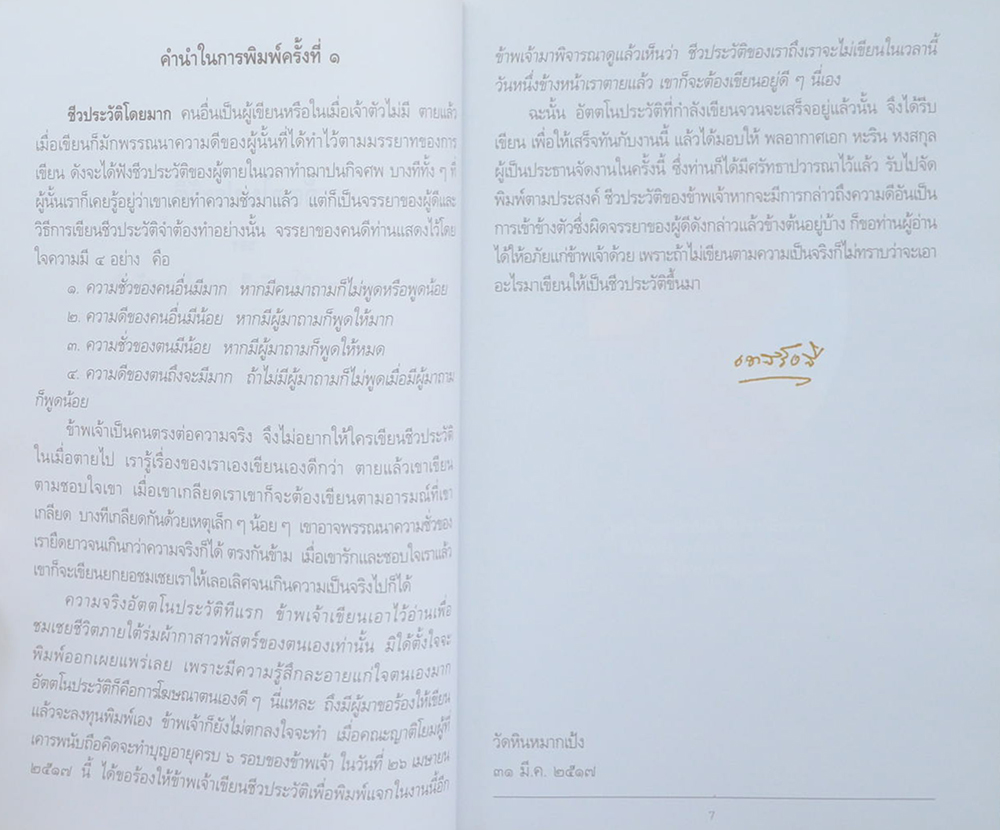 คำนำในการพิมพ์ครั้งที่ ๑
ชีวประวัติโดยมาก คนอื่นเป็นผู้เขียนหรือในเมื่อเจ้าตัวไม่มี ตายแล้ว
เมื่อเขียนก็มักพรรณนาความดีของผู้นั้นที่ได้ทำไว้ตามมรรยาทของการ
เขียน ดังจะได้ฟังชีวประวัติของผู้ตายในเวลาทำฌาปนกิจศพ บางทีทั้ง ๆ ที่
ผู้นั้นเราก็เคยรู้อยู่ว่าเขาเคยทำความชั่วมาแล้ว แต่ก็เป็นจรรยาของผู้ดีและ
วิธีการเขียนชีวประวัติจำต้องทำอย่างนั้น จรรยาของคนดีท่านแสดงไว้โดย
ใจความมี ๔ อย่าง คือ
๑. ความชั่วของคนอื่นมีมาก หากมีคนมาถามก็ไม่พูดหรือพูดน้อย
๒. ความดีของคนอื่นมีน้อย หากมีผู้มาถามก็พูดให้มาก
๓. ความชั่วของตนมีน้อย หากมีผู้มาถามก็พูดให้หมด
๔. ความดีของตนถึงจะมีมาก ถ้าไม่มีผู้มาถามก็ไม่พูดเมื่อมีผู้มาถาม
ก็พูดน้อย
ข้าพเจ้าเป็นคนตรงต่อความจริง จึงไม่อยากให้ใครเขียนชีวประวัติ
ในเมื่อตายไป เรารู้เรื่องของเราเองเขียนเองดีกว่า ตายแล้วเขาเขียน
ตามชอบใจเขา เมื่อเขาเกลียดเราเขาก็จะต้องเขียนตามอารมณ์ที่เขา
เกลียด บางทีเกลียดกันด้วยเหตุเล็ก ๆ น้อย ๆ เขาอาจพรรณนาความชั่วของ
เรายืดยาวจนเกินกว่าความจริงก็ได้ ตรงกันข้าม เมื่อเขารักและชอบใจเราแล้ว
เขาก็จะเขียนยกยอชมเชยเราให้เลอเลิศจนเกินความเป็นจริงไปก็ได้
ความจริงอัตตโนประวัติทีแรก ข้าพเจ้าเขียนเอาไว้อ่านเพื่อ
ชมเชยชีวิตภายใต้ร่มผ้ากาสาวพัสตร์ของตนเองเท่านั้น มิได้ตั้งใจจะ
พิมพ์ออกเผยแพร่เลย เพราะมีความรู้สึกละอายแก่ใจตนเองมาก
อัตตโนประวัติก็คือการโฆษณาตนเองดี ๆ นี่แหละ ถึงมีผู้มาขอร้องให้เขียน
แล้วจะลงทุนพิมพ์เอง ข้าพเจ้าก็ยังไม่ตกลงใจจะทำ เมื่อคณะญาติโยมผู้ที่
เคารพนับถือคิดจะทำบุญอายุครบ ๖ รอบของข้าพเจ้า ในวันที่ ๒๖ เมษายน
๒๕๑๗ นี้ ได้ขอร้องให้ข้าพเจ้าเขียนชีวประวัติเพื่อพิมพ์แจกในงานนี้อีก
ข้าพเจ้ามาพิจารณาดูแล้วเห็นว่า ชีวประวัติของเราถึงเราจะไม่เขียนในเวลานี้
วันหนึ่งข้างหน้าเราตายแล้ว เขาก็จะต้องเขียนอยู่ดี ๆ นี่เอง
ฉะนั้น อัตตโนประวัติที่กำลังเขียนจวนจะเสร็จอยู่แล้วนั้น จึงได้รีบ
เขียน เพื่อให้เสร็จทันกับงานนี้ แล้วได้มอบให้ พลอากาศเอก หะริน หงสกุล
ผู้เป็นประธานจัดงานในครั้งนี้ ซึ่งท่านก็ได้มีศรัทธาปวารณาไว้แล้ว รับไปจัด
พิมพ์ตามประสงค์ ชีวประวัติของข้าพเจ้าหากจะมีการกล่าวถึงความดีอันเป็น
การเข้าข้างตัวซึ่งผิดจรรยาของผู้ดีดังกล่าวแล้วข้างต้นอยู่บ้าง ก็ขอท่านผู้อ่าน
ได้ให้อภัยแก่ข้าพเจ้าด้วย เพราะถ้าไม่เขียนตามความเป็นจริงก็ไม่ทราบว่าจะเอา
อะไรมาเขียนให้เป็นชีวประวัติขึ้นมา
วัดหินหมากเป้ง
๓๑ มี.ค. ๒๕๑๗
7